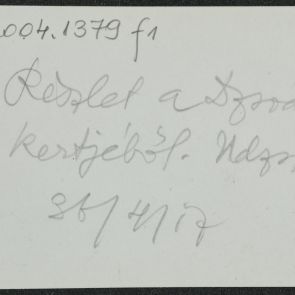 004.1379 f1
Részlet a Dzso
kertjéből. Udz
36/4/17